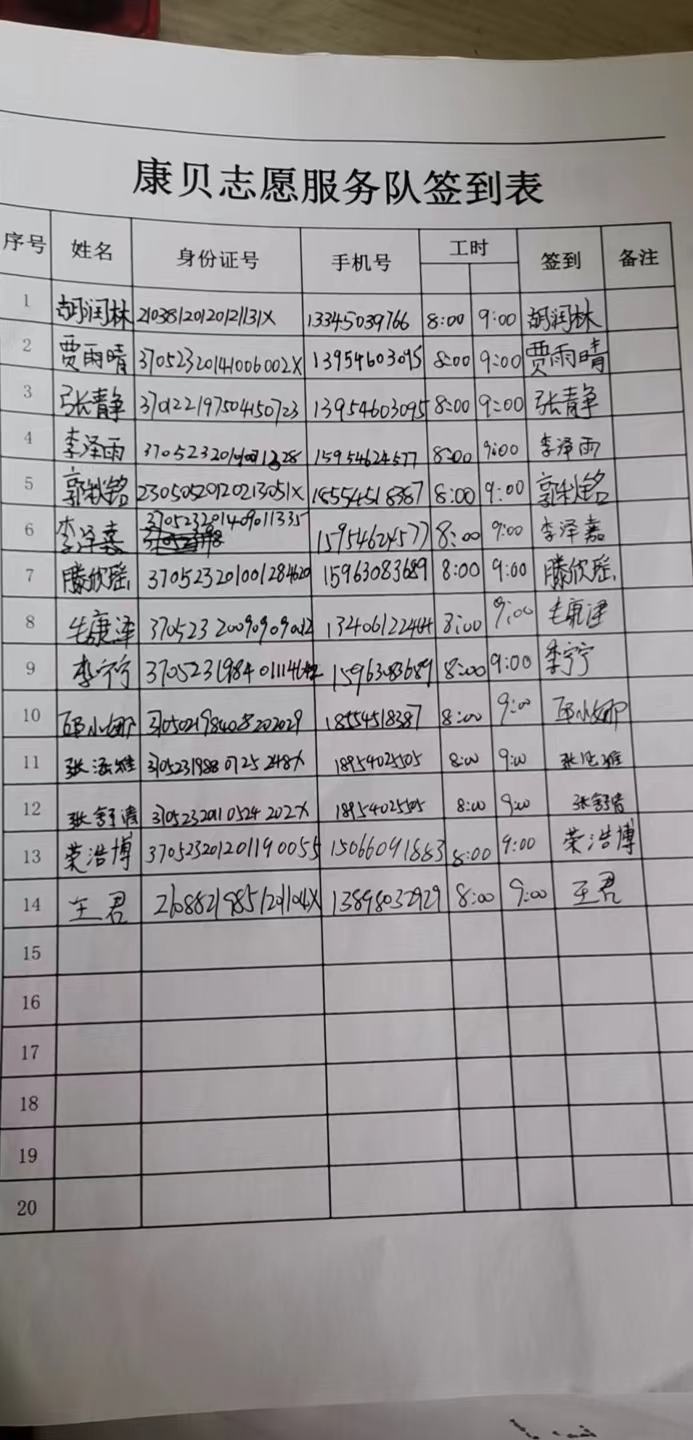 康贝志愿服务队签到表
序号 姓名 身份证号 手机号 工时 签到 备注
1 胡润林 21038120120121131X 13345039766 8:00 9:00 胡润林
2 贾雨晴 37052320141006002X 13954603095 8:00 9:00 贾雨晴
3 张静 370122197504150723 13954603095 8:00 9:00 张静
4 李泽雨 15954624577 8:00 9:00 李泽雨
5 23050520120213051X 18554518387 8:00 9:00
6 李泽嘉 370523201409011335 15954624577 8:00 9:00 李泽嘉
7 滕欣瑶 370523201001284620 15963083689 8:00 9:00 滕欣瑶
8 毛康泽 13406122464 8:00 9:00 毛康泽
9 李宁宁 15963083689 8:00 9:00 李宁宁
10 370502198408202029 18554518387 8:00 9:00
11 37052319880725248X 18954025505 8:00 9:00
12 张舒清 37052320110524202X 18954025505 8:00 9:00 张舒清
13 荣浩博 370523201201190055 15066091883 8:00 9:00 荣浩博
14 王君 21088219851201104X 13898032929 8:00 9:00 王君
15
16
17
18
19
20